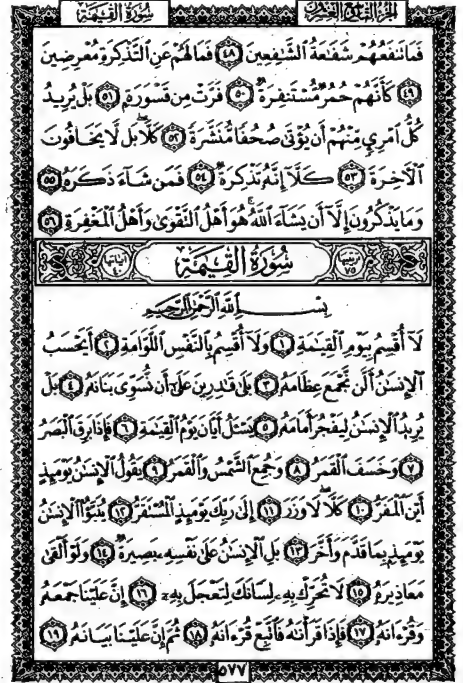 سُورَةُ القِيَامَةِ الجُزْءُ التَّاسِعُ وَالعِشْرُونَ
فَمَا تَنفَعُهُمْ شَفَٰعَةُ ٱلشَّٰفِعِينَ ٤٨ فَمَا لَهُمْ عَنِ ٱلتَّذْكِرَةِ مُعْرِضِينَ
٤٩ كَأَنَّهُمْ حُمُرٌ مُّسْتَنفِرَةٌ ٥٠ فَرَّتْ مِن قَسْوَرَةٍ ٥١ بَلْ يُرِيدُ
كُلُّ ٱمْرِئٍ مِّنْهُمْ أَن يُؤْتَىٰ صُحُفًا مُّنَشَّرَةً ٥٢ كَلَّا بَل لَّا يَخَافُونَ
ٱلْءَاخِرَةَ ٥٣ كَلَّآ إِنَّهُۥ تَذْكِرَةٌ ٥٤ فَمَن شَآءَ ذَكَرَهُۥ ٥٥
وَمَا يَذْكُرُونَ إِلَّآ أَن يَشَآءَ ٱللَّهُ هُوَ أَهْلُ ٱلتَّقْوَىٰ وَأَهْلُ ٱلْمَغْفِرَةِ ٥٦
ترتيبها ٧٥ سُورَةُ القِيَامَةِ آياتها ٤٠
بِسْمِ ٱللَّهِ ٱلرَّحْمَٰنِ ٱلرَّحِيمِ
لَآ أُقْسِمُ بِيَوْمِ ٱلْقِيَٰمَةِ ١ وَلَآ أُقْسِمُ بِٱلنَّفْسِ ٱللَّوَّامَةِ ٢ أَيَحْسَبُ
ٱلْإِنسَٰنُ أَلَّن نَّجْمَعَ عِظَامَهُۥ ٣ بَلَىٰ قَٰدِرِينَ عَلَىٰٓ أَن نُّسَوِّىَ بَنَانَهُۥ ٤ بَلْ
يُرِيدُ ٱلْإِنسَٰنُ لِيَفْجُرَ أَمَامَهُۥ ٥ يَسْـَٔلُ أَيَّانَ يَوْمُ ٱلْقِيَٰمَةِ ٦ فَإِذَا بَرِقَ ٱلْبَصَرُ
٧ وَخَسَفَ ٱلْقَمَرُ ٨ وَجُمِعَ ٱلشَّمْسُ وَٱلْقَمَرُ ٩ يَقُولُ ٱلْإِنسَٰنُ يَوْمَئِذٍ
أَيْنَ ٱلْمَفَرُّ ١٠ كَلَّا لَا وَزَرَ ١١ إِلَىٰ رَبِّكَ يَوْمَئِذٍ ٱلْمُسْتَقَرُّ ١٢ يُنَبَّؤُا۟ ٱلْإِنسَٰنُ
يَوْمَئِذٍۭ بِمَا قَدَّمَ وَأَخَّرَ ١٣ بَلِ ٱلْإِنسَٰنُ عَلَىٰ نَفْسِهِۦ بَصِيرَةٌ ١٤ وَلَوْ أَلْقَىٰ
مَعَاذِيرَهُۥ ١٥ لَا تُحَرِّكْ بِهِۦ لِسَانَكَ لِتَعْجَلَ بِهِۦٓ ١٦ إِنَّ عَلَيْنَا جَمْعَهُۥ
وَقُرْءَانَهُۥ ١٧ فَإِذَا قَرَأْنَٰهُ فَٱتَّبِعْ قُرْءَانَهُۥ ١٨ ثُمَّ إِنَّ عَلَيْنَا بَيَانَهُۥ ١٩
٥٧٧